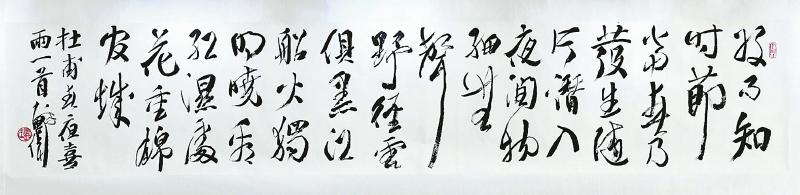 好雨知
时節
當春乃
發生随
风潛入
夜潤物
細無
聲
野徑雲
俱黑江
船火獨
明曉看
紅濕處
花重錦
官城
杜甫春夜喜
雨一首